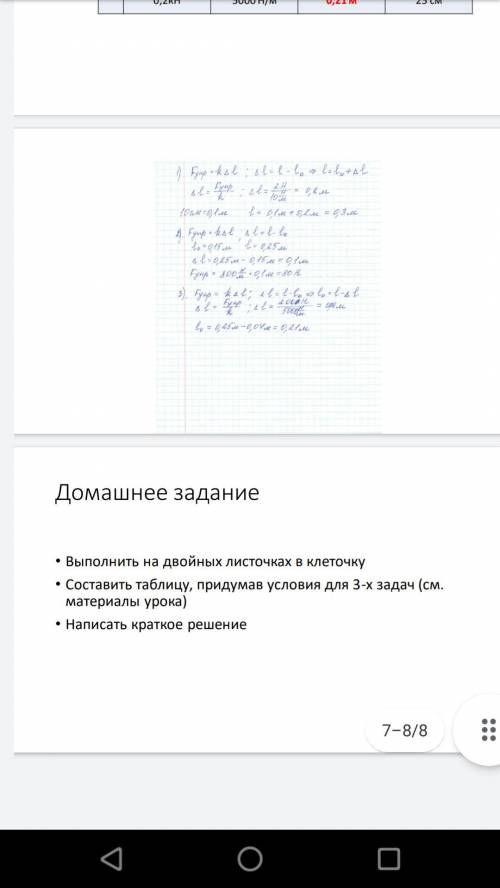 0,2кН 5000 Н/м 0,21 м 25 см
1) Fупр = kΔl ; Δl = l - l₀ ⇒ l = l₀ + Δl
Δl = Fупр/k ; Δl = 2Н/10 Н/м = 0,2м
10см = 0,1м l = 0,1м + 0,2м = 0,3м
2) Fупр = kΔl ; Δl = l - l₀
l₀ = 0,15м l = 0,25м
Δl = 0,25м - 0,15м = 0,1м
Fупр = 800 Н/м · 0,1м = 80Н
3) Fупр = kΔl ; Δl = l - l₀ ⇒ l₀ = l - Δl
Δl = Fупр/k ; Δl =
l₀ = 0,25м - 0,04м = 0,21м
Домашнее задание
• Выполнить на двойных листочках в клеточку
• Составить таблицу, придумав условия для 3-х задач (см.
материалы урока)
• Написать краткое решение
7–8/8